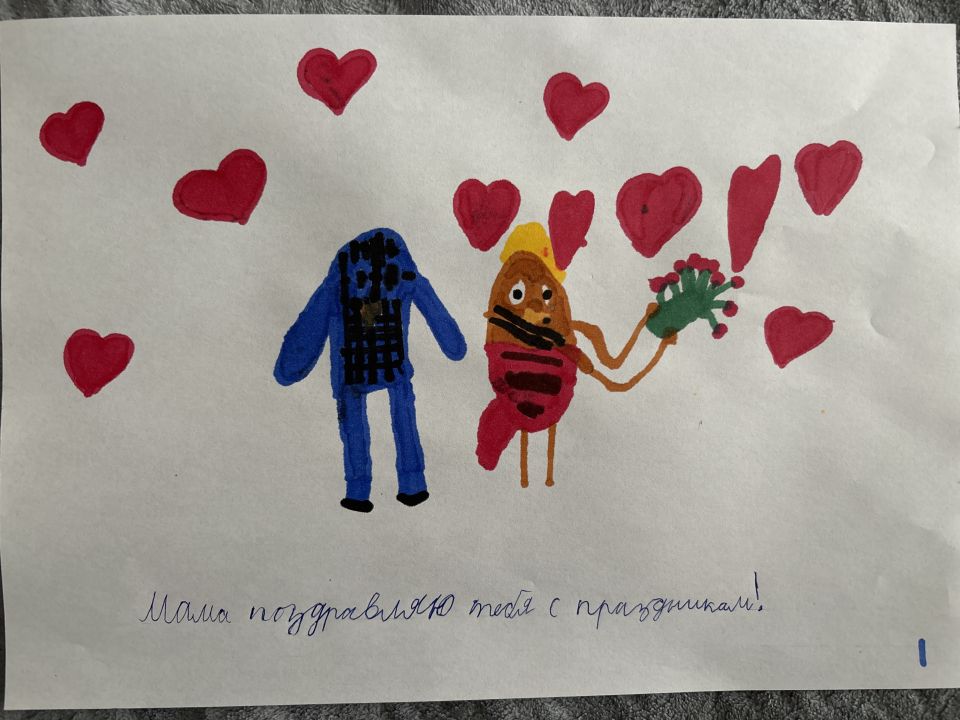 Мама поздравляю тебя с праздникам!
1